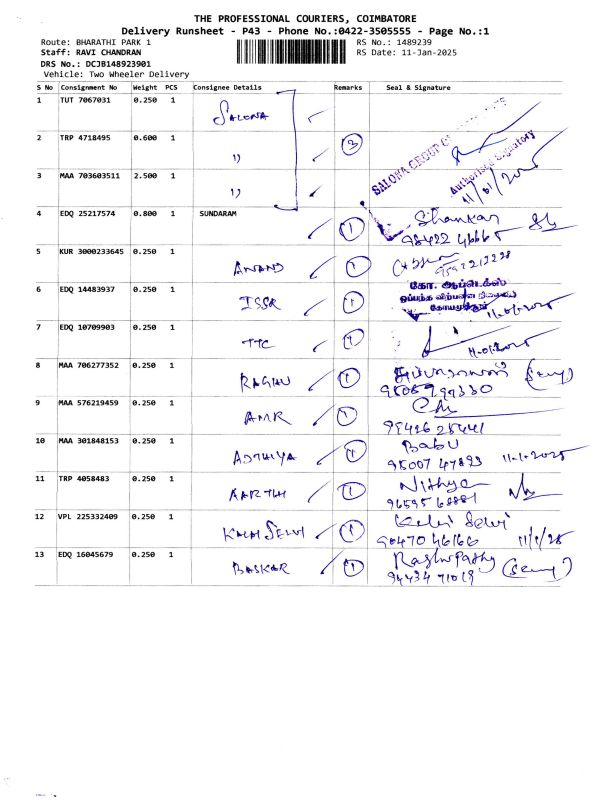 THE PROFESSIONAL COURIERS, COIMBATORE
Delivery Runsheet - P43 - Phone No.:0422-3505555 - Page No.:1
Route: BHARATHI PARK 1 RS No.: 1489239
Staff: RAVI CHANDRAN RS Date: 11-Jan-2025
DRS No.: DCJB148923901
Vehicle: Two Wheeler Delivery
S No Consignment No Weight PCS Consignee Details Remarks Seal & Signature
1 TUT 7067031 0.250 1 SALONA
2 TRP 4718495 0.600 1 " 3 SALONA GROUP Authorised Signatory
3 MAA 703603511 2.500 1 " 11/01/2025
4 EDQ 25217574 0.800 1 SUNDARAM 1 Shankar
98422 46665
5 KUR 3000233645 0.250 1 ANAND 1
6 EDQ 14483937 0.250 1 ISSR 1 கோ. ஆப்டெக்ஸ்
11-01-2025
7 EDQ 10709903 0.250 1 TTC 1 11.01.2025
8 MAA 706277352 0.250 1 RAGHU 1
9 MAA 576219459 0.250 1 AMR 1
10 MAA 301848153 0.250 1 ADTHIYA 1 Babu
95007 47893 11-1-2025
11 TRP 4058483 0.250 1 AARTHI 1 Nithya
96595 68881
12 VPL 225332409 0.250 1 KALAI SELVI 1 Kalai Selvi
90470 46166 11/1/25
13 EDQ 16045679 0.250 1 BASKAR 1 Raghupathy
94434 71019